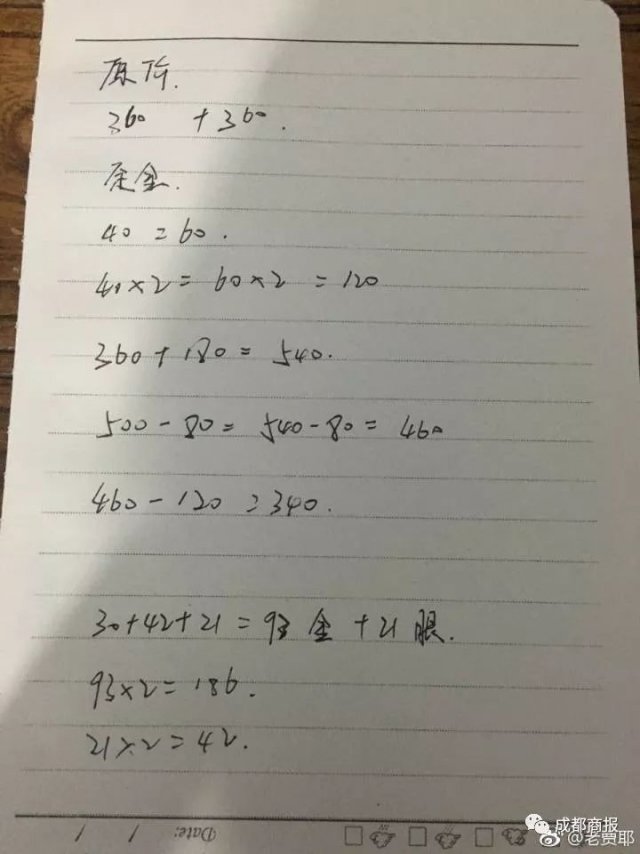 原价.
360 +360.
定金.
40 = 60.
40×2= 60×2 = 120
360+180= 540.
500-80= 540-80= 460
460-120 =340.
30+42+21=93 金 +21 眼.
93×2=186.
21×2=42.
/ / Date:
成都商报
@老贾耶